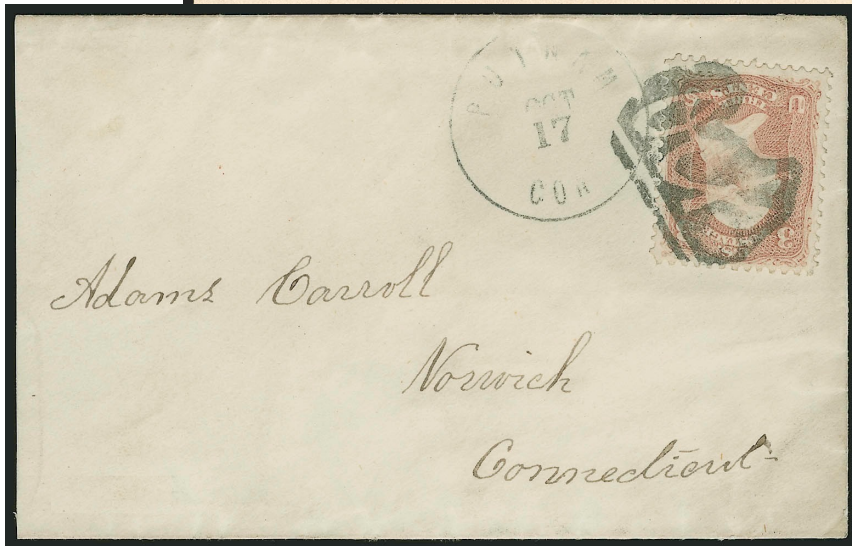 PUTNAM
OCT
17
CON
U
3
CENTS
Adams Carroll
Norwich
Connecticut